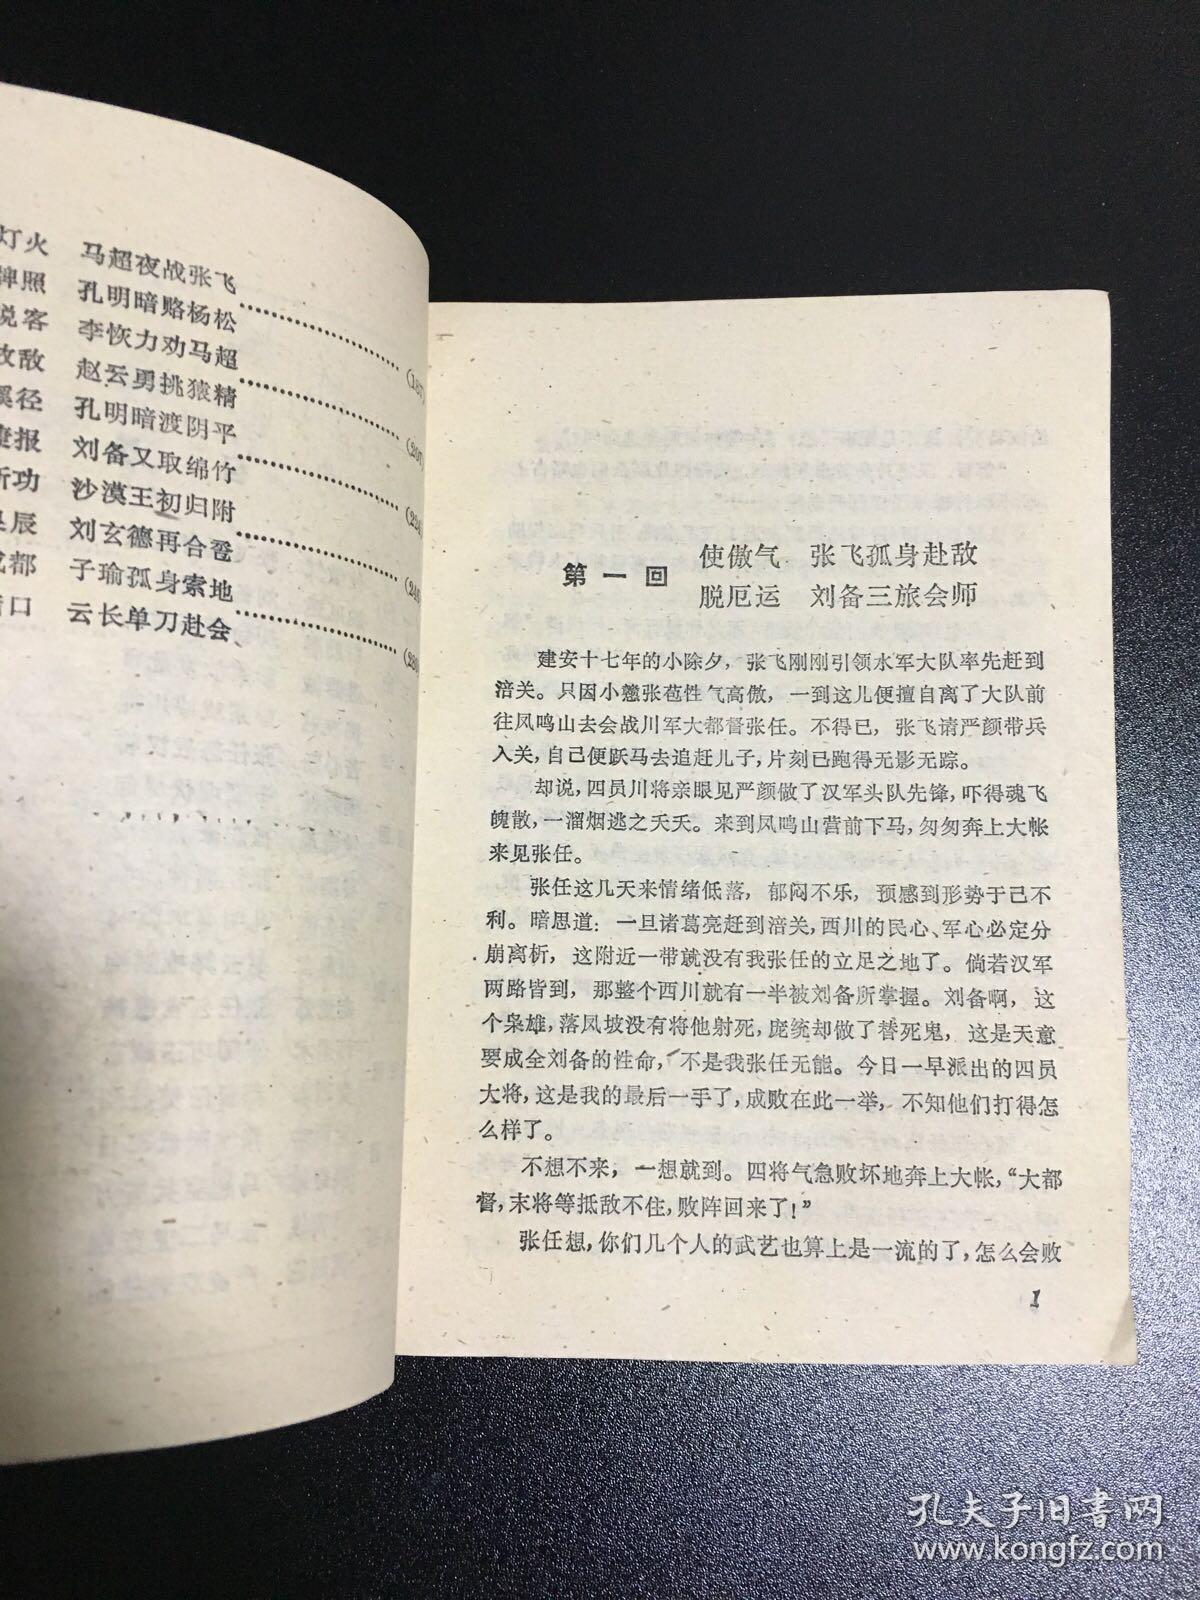 灯火　马超夜战张飞
牌照　孔明暗赂杨松……(187)
说客　李恢力劝马超
敌　赵云勇挑猿精……(207)
溪径　孔明暗渡阴平
捷报　刘备又取绵竹……(224)
功　沙漠王初归附
辰　刘玄德再合卺……(246)
成都　子瑜孤身索地
口　云长单刀赴会……(280)
第一回　使傲气　张飞孤身赴敌
脱厄运　刘备三旅会师
建安十七年的小除夕，张飞刚刚引领水军大队率先赶到
涪关。只因小憨张苞性气高傲，一到这儿便擅自离了大队前
往凤鸣山去会战川军大都督张任。不得已，张飞请严颜带兵
入关，自己便跃马去追赶儿子，片刻已跑得无影无踪。
却说，四员川将亲眼见严颜做了汉军头队先锋，吓得魂飞
魄散，一溜烟逃之夭夭。来到凤鸣山营前下马，匆匆奔上大帐
来见张任。
张任这几天来情绪低落，郁闷不乐，预感到形势于己不
利。暗思道：一旦诸葛亮赶到涪关，西川的民心、军心必定分
崩离析，这附近一带就没有我张任的立足之地了。倘若汉军
两路皆到，那整个西川就有一半被刘备所掌握。刘备啊，这
个枭雄，落凤坡没有将他射死，庞统却做了替死鬼，这是天意
要成全刘备的性命，不是我张任无能。今日一早派出的四员
大将，这是我的最后一手了，成败在此一举，不知他们打得怎
么样了。
不想不来，一想就到。四将气急败坏地奔上大帐，“大都
督，末将等抵敌不住，败阵回来了！”
张任想，你们几个人的武艺也算上是一流的了，怎么会败
1
孔夫子旧书网
www.kongfz.com